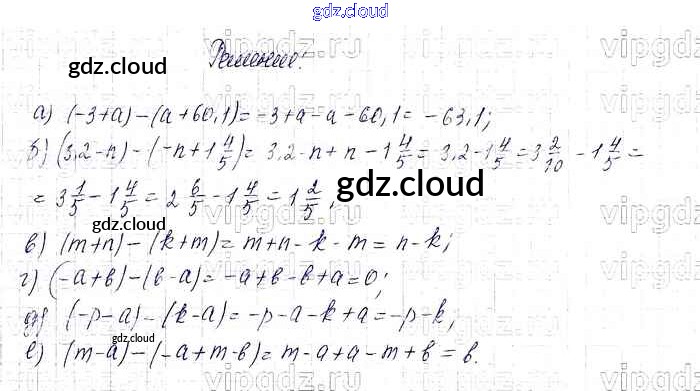 gdz.cloud
Решение:
а) (-3+a)-(a+60,1)=-3+a-a-60,1=-63,1;
б) (3,2-n)-(-n+1 4/5)=3,2-n+n-1 4/5=3,2-1 4/5=3 2/10-1 4/5=
=3 1/5-1 4/5=2 6/5-1 4/5=1 2/5;
в) (m+n)-(k+m)=m+n-k-m=n-k;
г) (-a+b)-(b-a)=-a+b-b+a=0;
д) (-p-a)-(k-a)=-p-a-k+a=-p-k;
е) (m-a)-(-a+m-b)=m-a+a-m+b=b.
gdz.cloud
gdz.cloud
gdz.cloud
gdz.cloud
vipgdz.ru
vipgdz.ru